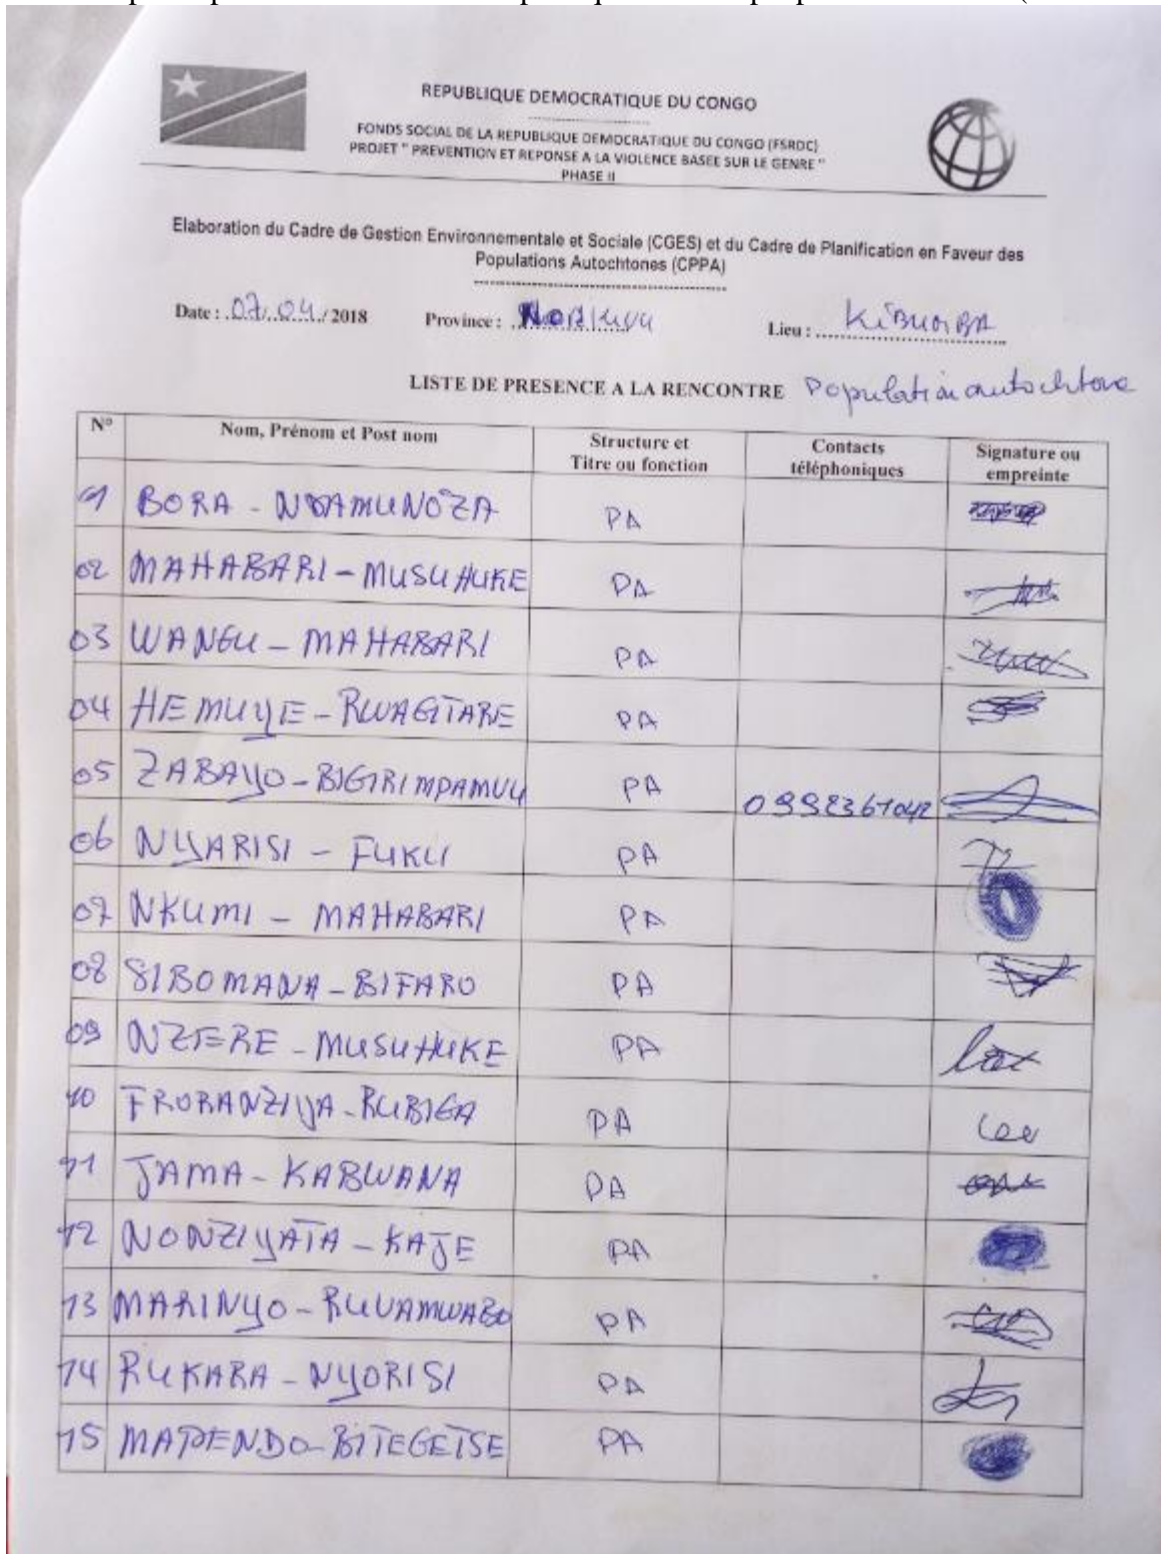 REPUBLIQUE DEMOCRATIQUE DU CONGO
FONDS SOCIAL DE LA REPUBLIQUE DEMOCRATIQUE DU CONGO (FSRDC)
PROJET " PREVENTION ET REPONSE A LA VIOLENCE BASEE SUR LE GENRE "
PHASE II
Elaboration du Cadre de Gestion Environnementale et Sociale (CGES) et du Cadre de Planification en Faveur des
Populations Autochtones (CPPA)
Date : 07/04/2018 Province : Lieu :
LISTE DE PRESENCE A LA RENCONTRE Population autochtone
N° Nom, Prénom et Post nom Structure et Titre ou fonction Contacts téléphoniques Signature ou empreinte
01 BORA - NDAMUNOZA PA
02 MAHABARI - MUSUHUKE PA
03 WANGU - MAHABARI PA
04 HEMUYE - RWAGITARE PA
05 ZABAYO - BIGIRIMPAMVU PA
06 NYARISI - FUKU PA
07 NKUMI - MAHABARI PA
08 SIBOMANA - BIFARO PA
09 NZERE - MUSUHUKE PA
10 FRORANZIYA - RUBIGA PA
11 JAMA - KABWANA PA
12 NONZIYATA - KAJE PA
13 MARINYO - RUVAMWABO PA
14 RUKARA - NYORISI PA
15 MAPENDO - BITEGETSE PA